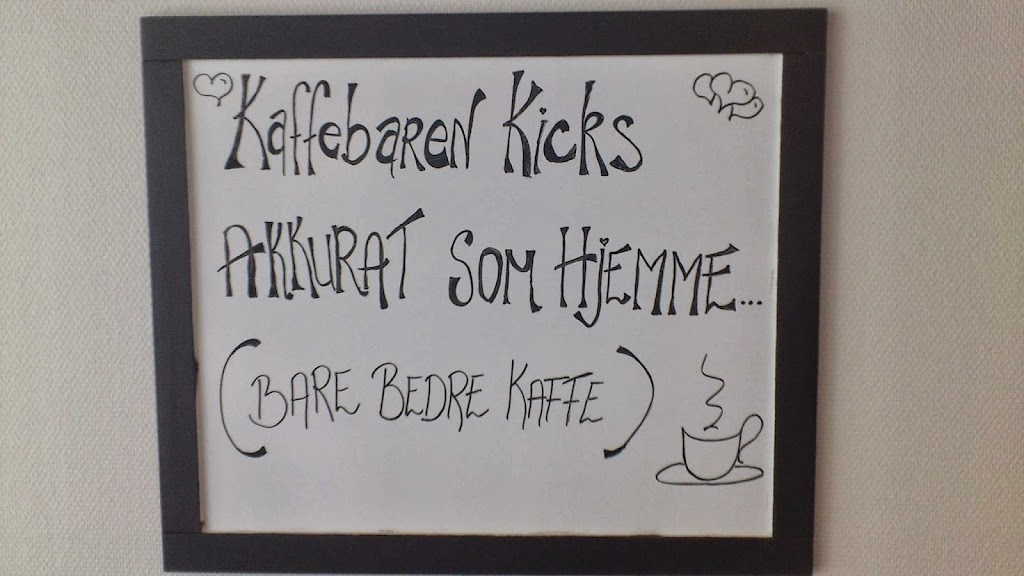 Kaffebaren Kicks
AKKURAT SOM HJEMME...
(BARE BEDRE KAFFE)